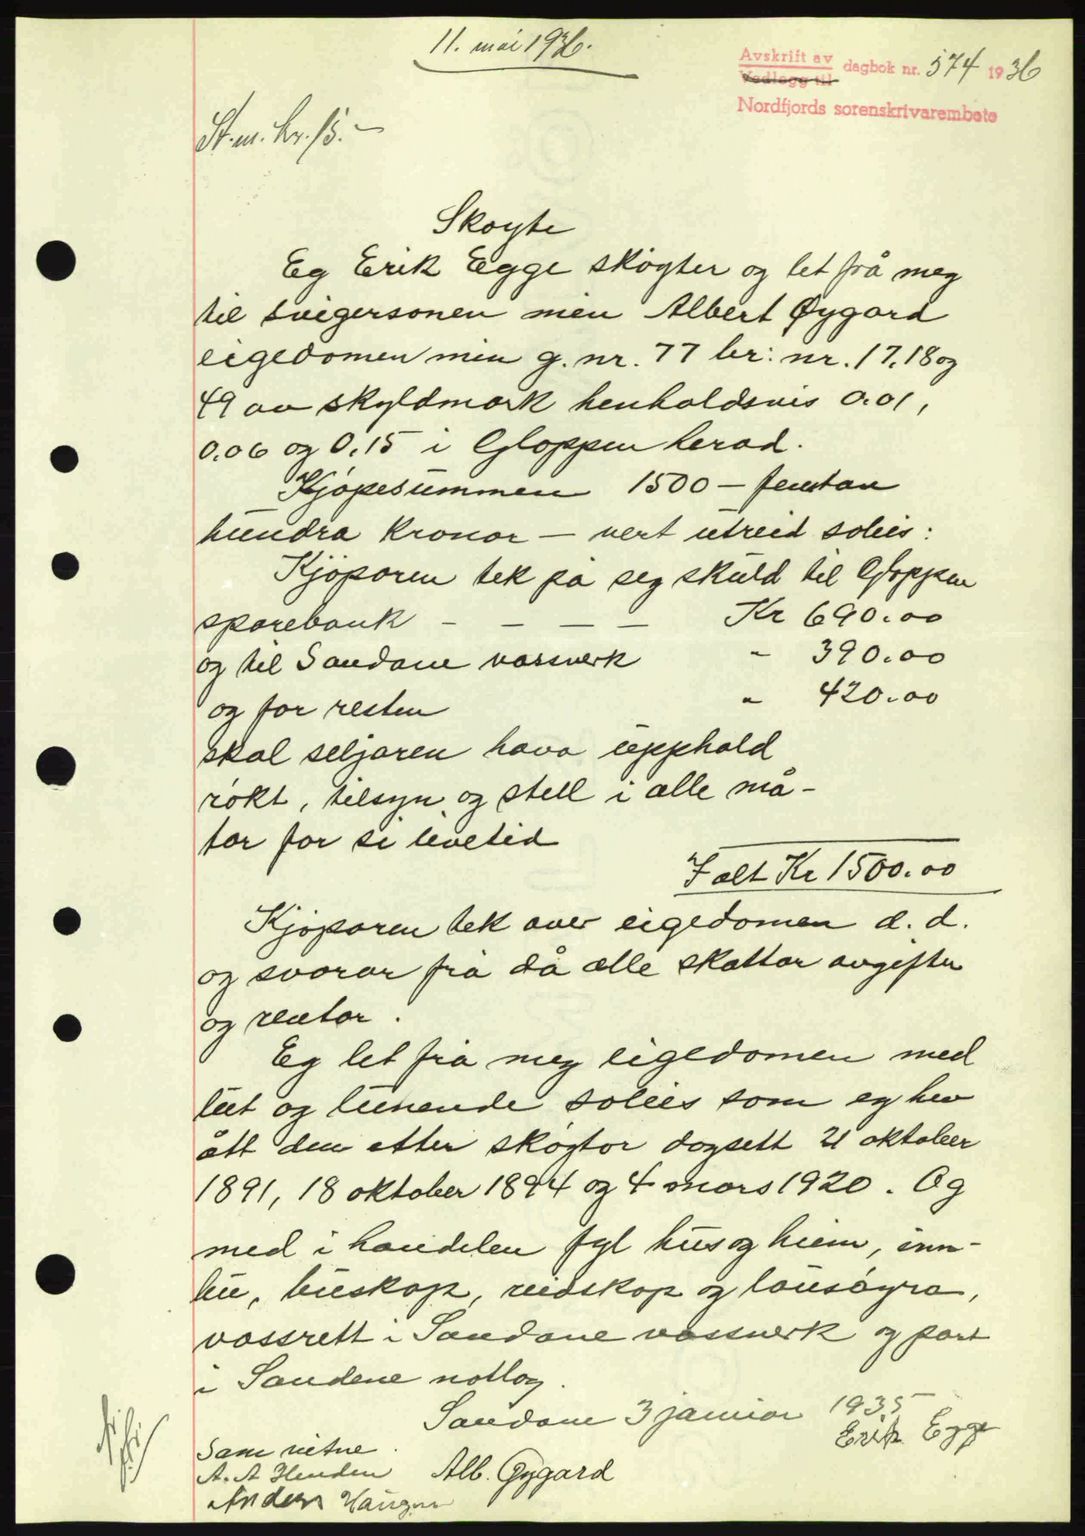 11. mai 1936.
Avskrift av
Vedlegg til
dagbok nr. 574 1936
Nordfjords sorenskrivarembete
St.m. kr. 15.-
Skøyte
Eg Erik Egge skøyter og let frå meg
til svigersonen min Albert Øygard
eigedomen min g. nr. 77 br: nr. 17, 18 og
49 av skyldmark henholdsvis 0.01,
0.06 og 0.15 i Gloppen herad.
Kjøpesummen 1500 – femtan
hundra kronor – vert utreid soleis:
Kjøparen tek på seg skuld til Gloppen
sparebank – – – – Kr 690.00
og til Sandane vassverk " 390.00
og for resten " 420.00
skal seljaren hava upphald
røkt, tilsyn og stell i alle må-
tar for si livetid
I alt Kr 1500.00
Kjøparen tek over eigedomen d. d.
og svarar frå då alle skattar avgifter
og rentor.
Eg let frå meg eigedomen med
lut og lunende soleis som eg hev
ått den etter skøytor dagsett 21 oktober
1891, 18 oktober 1894 og 4 mars 1920. Og
med i handelen fyl hus og heim, inn-
bu, buskap, reidskap og lausøyra,
vassrett i Sandane vassverk og part
i Sandane notlag.
Sandane 3 januar 1935
Erik Egge
Som vitne.
A. A Henden Alb. Øygard
Anders Haugen